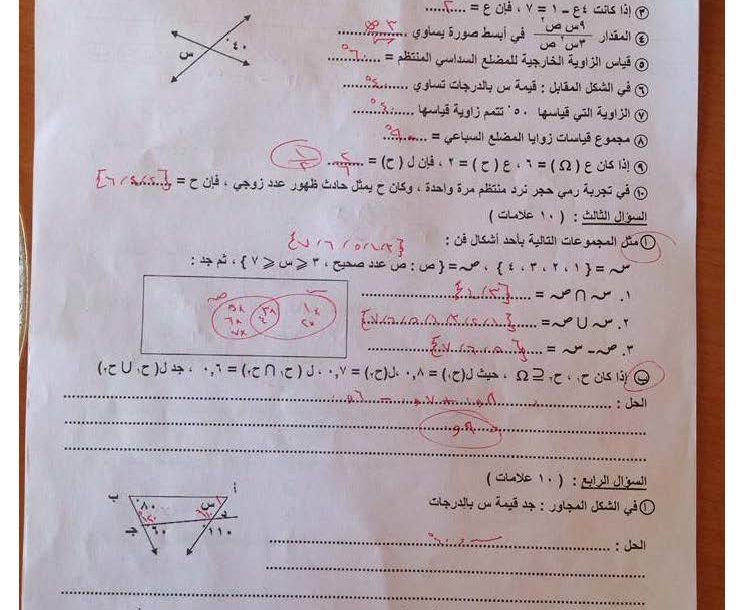 ③ إذا كانت ٤ع − ١ = ٧ ، فإن ع = ....٢....
④ المقدار ٩س ص٢ / ٣س٢ ص في أبسط صورة يساوي ...٣ص / س...
⑤ قياس الزاوية الخارجية للمضلع السداسي المنتظم = ...٦٠°...
⑥ في الشكل المقابل : قيمة س بالدرجات تساوي ...٤٠°...
٤٠° س
⑦ الزاوية التي قياسها ٥٠° تتمم زاوية قياسها ...٤٠°...
⑧ مجموع قياسات زوايا المضلع السباعي = ......
⑨ إذا كان ع ( Ω ) = ٦ ، ع ( ح ) = ٢ ، فإن ل ( ح ) = ...٢/٦... ١/٣
⑩ في تجربة رمي حجر نرد منتظم مرة واحدة ، وكان ح يمثل حادث ظهور عدد زوجي ، فإن ح = {٢،٤،٦}
السؤال الثالث : ( ١٠ علامات )
أ مثل المجموعات التالية بأحد أشكال فن : {٣،٤،٥،٦،٧}
س = { ١ ، ٢ ، ٣ ، ٤ } ، ص = { ص : ص عدد صحيح ، ٣ ⩽ س ⩽ ٧ } ، ثم جد :
١. س ∩ ص = ...{٣،٤}...
٢. س ∪ ص = ...{١،٢،٣،٤،٥،٦،٧}...
٣. ص − س = ...{٥،٦،٧}...
س ص
×١ ×٢ ×٣ ×٤ ×٥ ×٦ ×٧
ب إذا كان ح١ ، ح٢ ⊆ Ω ، حيث ل(ح١) = ٠,٨ ، ل(ح٢) = ٠,٧ ، ل ( ح١ ∩ ح٢) = ٠,٦ ، جد ل( ح١ ∪ ح٢)
الحل : ... ٠,٨ + ٠,٧ − ٠,٦ ...
٠,٩
السؤال الرابع : ( ١٠ علامات )
أ في الشكل المجاور : جد قيمة س بالدرجات
أ ب ٨٠° س د ج ٦٠° ١١٠°
الحل :